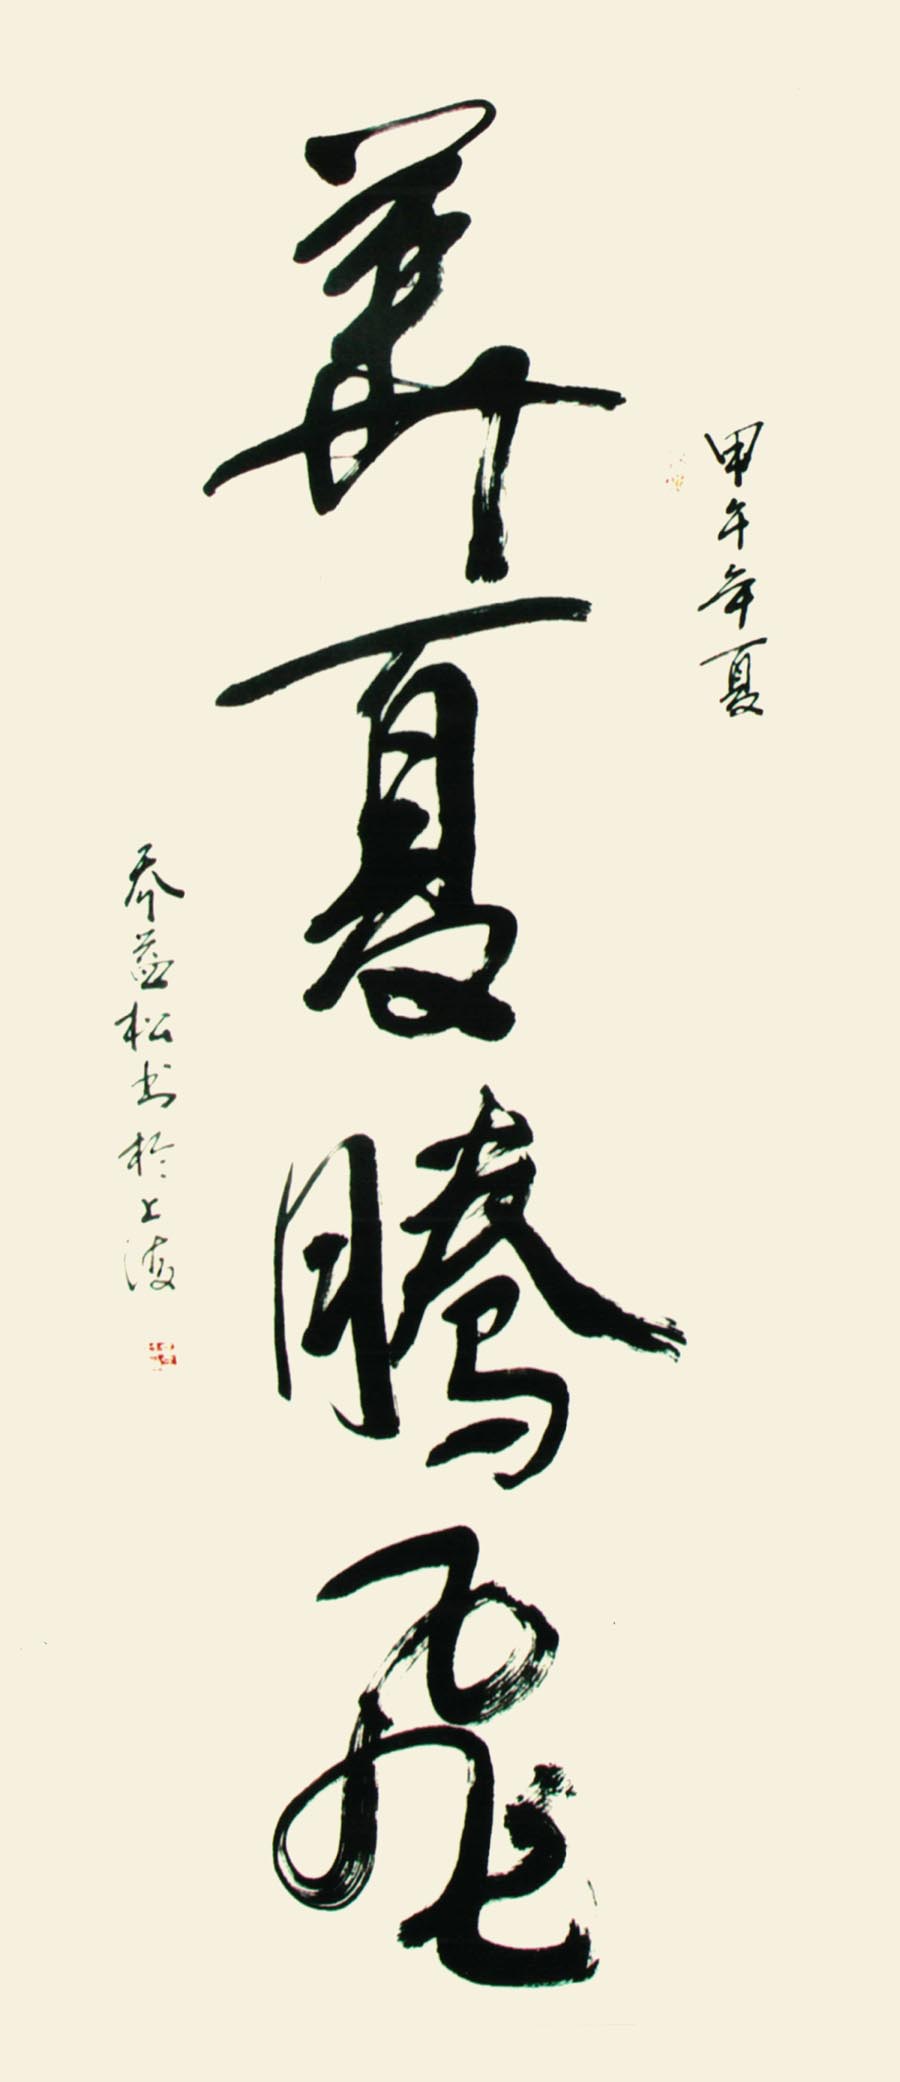 甲午年夏
華夏騰飛
乔益松书於上海